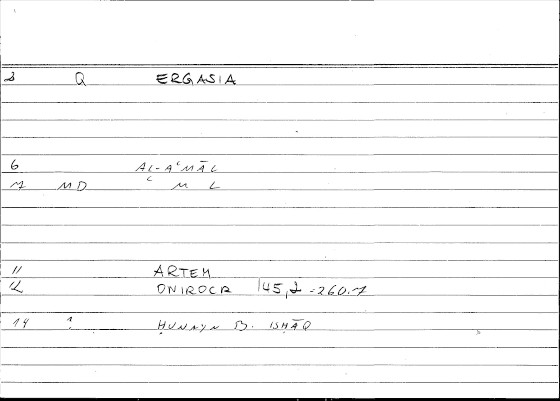 2 Q ERGASIA
6 AL-AʿMĀL
1 MD ʿ M L
11 ARTEM
12 ONIROCR 145,2-260.1
14 1 ḤUNAYN B. ISḤĀQ